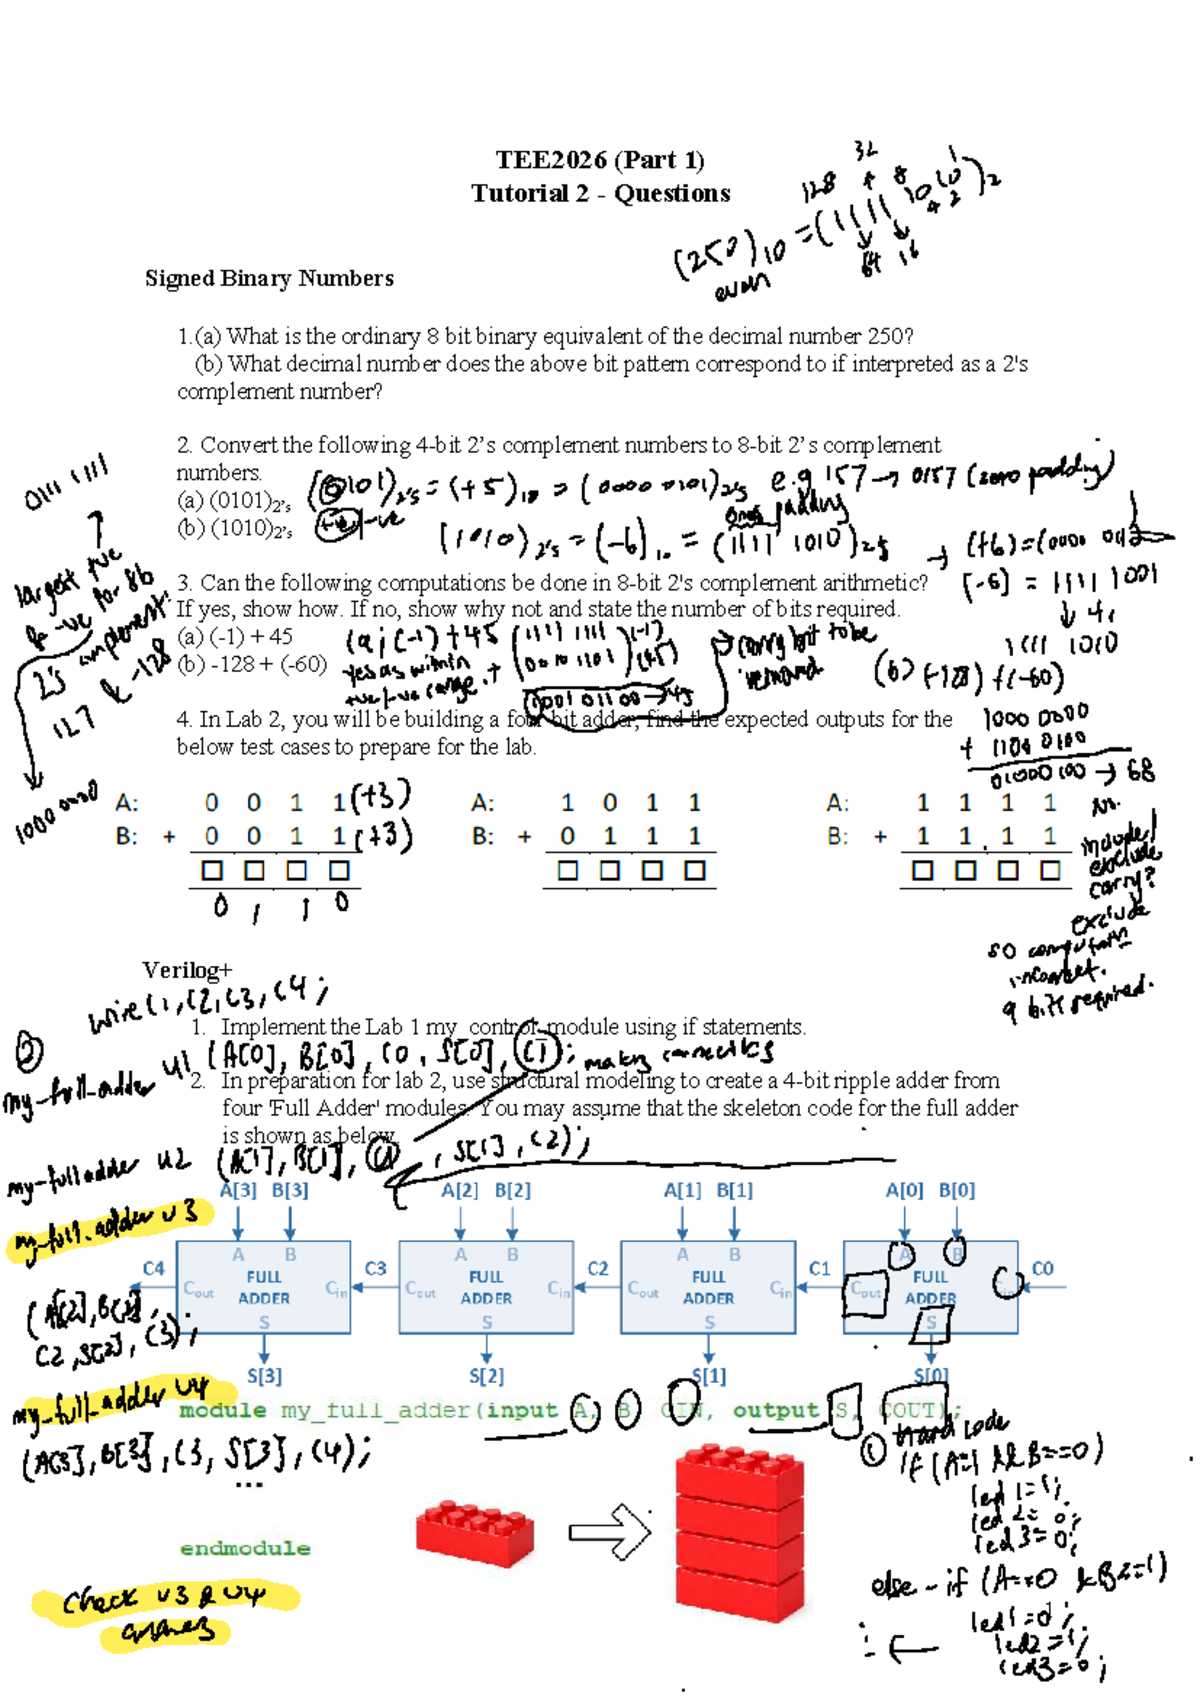 TEE2026 (Part 1)
Tutorial 2 - Questions
(250)10 = (1111 1010)2
128 32 8 1
64 16 4 2
even
Signed Binary Numbers
1.(a) What is the ordinary 8 bit binary equivalent of the decimal number 250?
(b) What decimal number does the above bit pattern correspond to if interpreted as a 2's
complement number?
2. Convert the following 4-bit 2's complement numbers to 8-bit 2's complement
numbers.
(a) (0101)2's (0101)2's = (+5)10 = (0000 0101)2's e.g 157 → 0157 (zero padding)
(b) (1010)2's +ve -ve (1010)2's = (-6)10 = (1111 1010)2's
ones padding
→ (+6) = (0000 0110
(-6) = 1111 1001
↓ +1
1111 1010
0111 1111
largest +ve
& -ve for 8b
2's complement:
127 & -128
1000 0000
3. Can the following computations be done in 8-bit 2's complement arithmetic?
If yes, show how. If no, show why not and state the number of bits required.
(a) (-1) + 45
(b) -128 + (-60)
(a) (-1) + 45
yes as within
+ve/-ve range.
1111 1111 (-1)
+ 0010 1101 (45)
00010 1100 → 45
→ carry bit to be
removed
(b) (-128) + (-60)
1000 0000
+ 1100 0100
01000100 → 68
no.
include/
exclude
carry?
exclude
so computation
incorrect.
9 bits required.
4. In Lab 2, you will be building a four bit adder, find the expected outputs for the
below test cases to prepare for the lab.
A: 0 0 1 1 (+3)
B: + 0 0 1 1 (+3)
0 1 1 0
A: 1 0 1 1
B: + 0 1 1 1
A: 1 1 1 1
B: + 1 1 1 1
Verilog+
wire C1, C2, C3, C4;
1. Implement the Lab 1 my_control module using if statements.
②
my-full-adder u1 (A[0], B[0], C0, S[0], C1); making connections
2. In preparation for lab 2, use structural modeling to create a 4-bit ripple adder from
four 'Full Adder' modules. You may assume that the skeleton code for the full adder
is shown as below.
my-full adder u2 (A[1], B[1], C1, S[1], C2);
my-full-adder u3
(A[2], B[2],
C2, S[2], C3);
my-full-adder u4
(A[3], B[3], C3, S[3], C4);
A[3] B[3] A[2] B[2] A[1] B[1] A[0] B[0]
A B A B A B A B
C4 Cout FULL ADDER Cin C3 Cout FULL ADDER Cin C2 Cout FULL ADDER Cin C1 Cout FULL ADDER Cin C0
S S S S
S[3] S[2] S[1] S[0]
module my_full_adder(input A, B, CIN, output S, COUT);
...
endmodule
check u3 & u4
answers
① hard code
if (A=1 && B==0)
led 1=1;
led 2= 0;
led 3= 0;
else-if (A==0 &B==1)
led1=0;
led2=1;
led3=0;